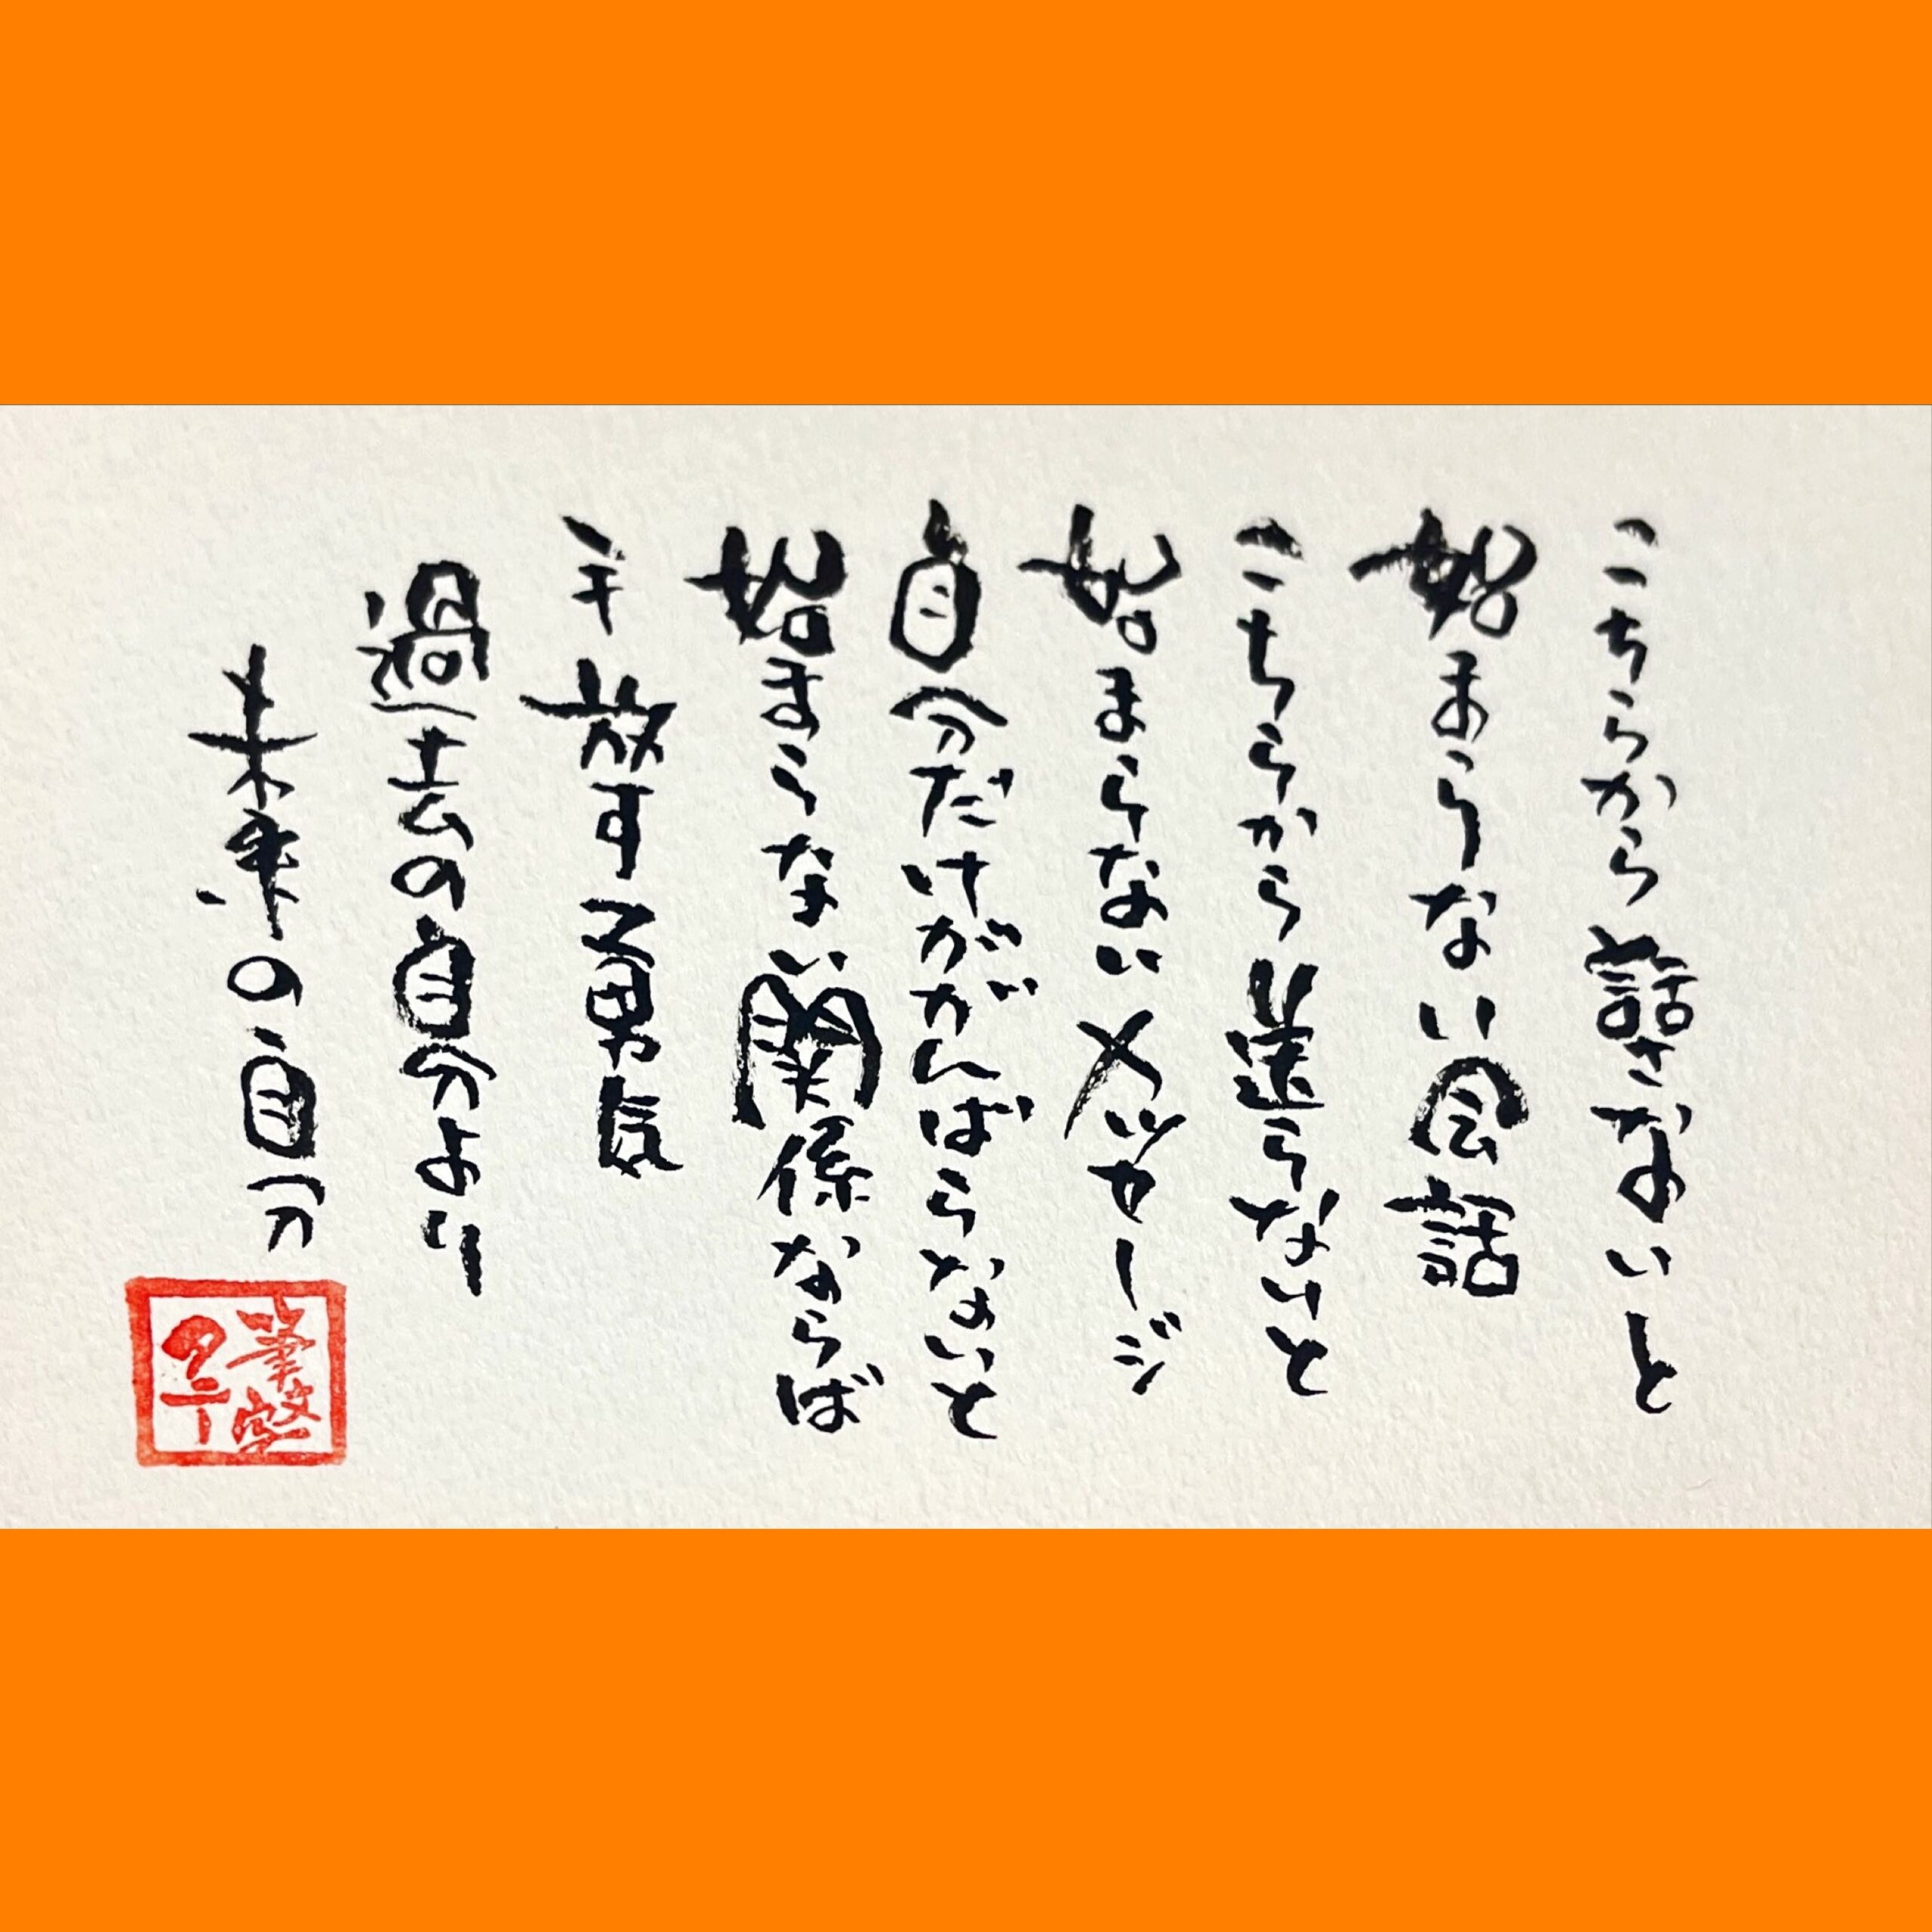 こちらから話さないと
始まらない会話
こちらから送らないと
始まらないメッセージ
自分だけががんばらないと
始まらない関係ならば
手放す勇気
過去の自分より
未来の自分
筆文字